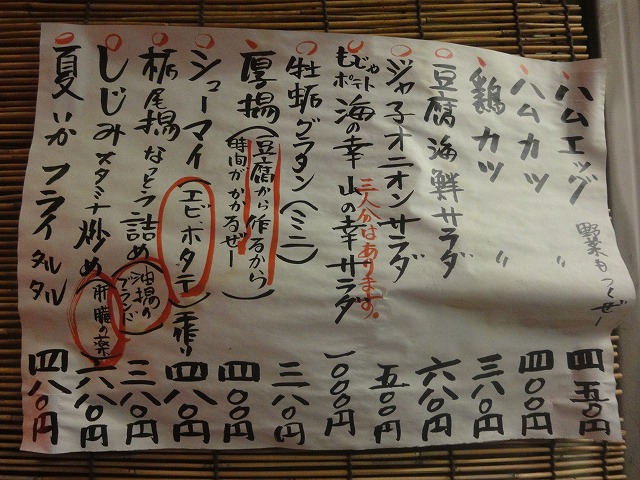 ハムエッグ 野菜もつくぜー 四五〇円
ハムカツ 〃 四〇〇円
鶏カツ 〃 三八〇円
豆腐海鮮サラダ 六八〇円
ジャ子オニオンサラダ 五〇〇円
もじゃポテト海の幸山の幸サラダ 一〇〇〇円
三人分はあります。
牡蛎グラタン(ミニ) 三八〇円
厚揚(豆腐から作るから時間がかかるぜー) 四〇〇円
シューマイ(エビホタテ)手作り 四八〇円
栃尾揚なっとう詰め(油揚のブランド) 三八〇円
しじみスタミナ炒め(肝臓の薬) 六八〇円
夏いかフライタルタル 四八〇円